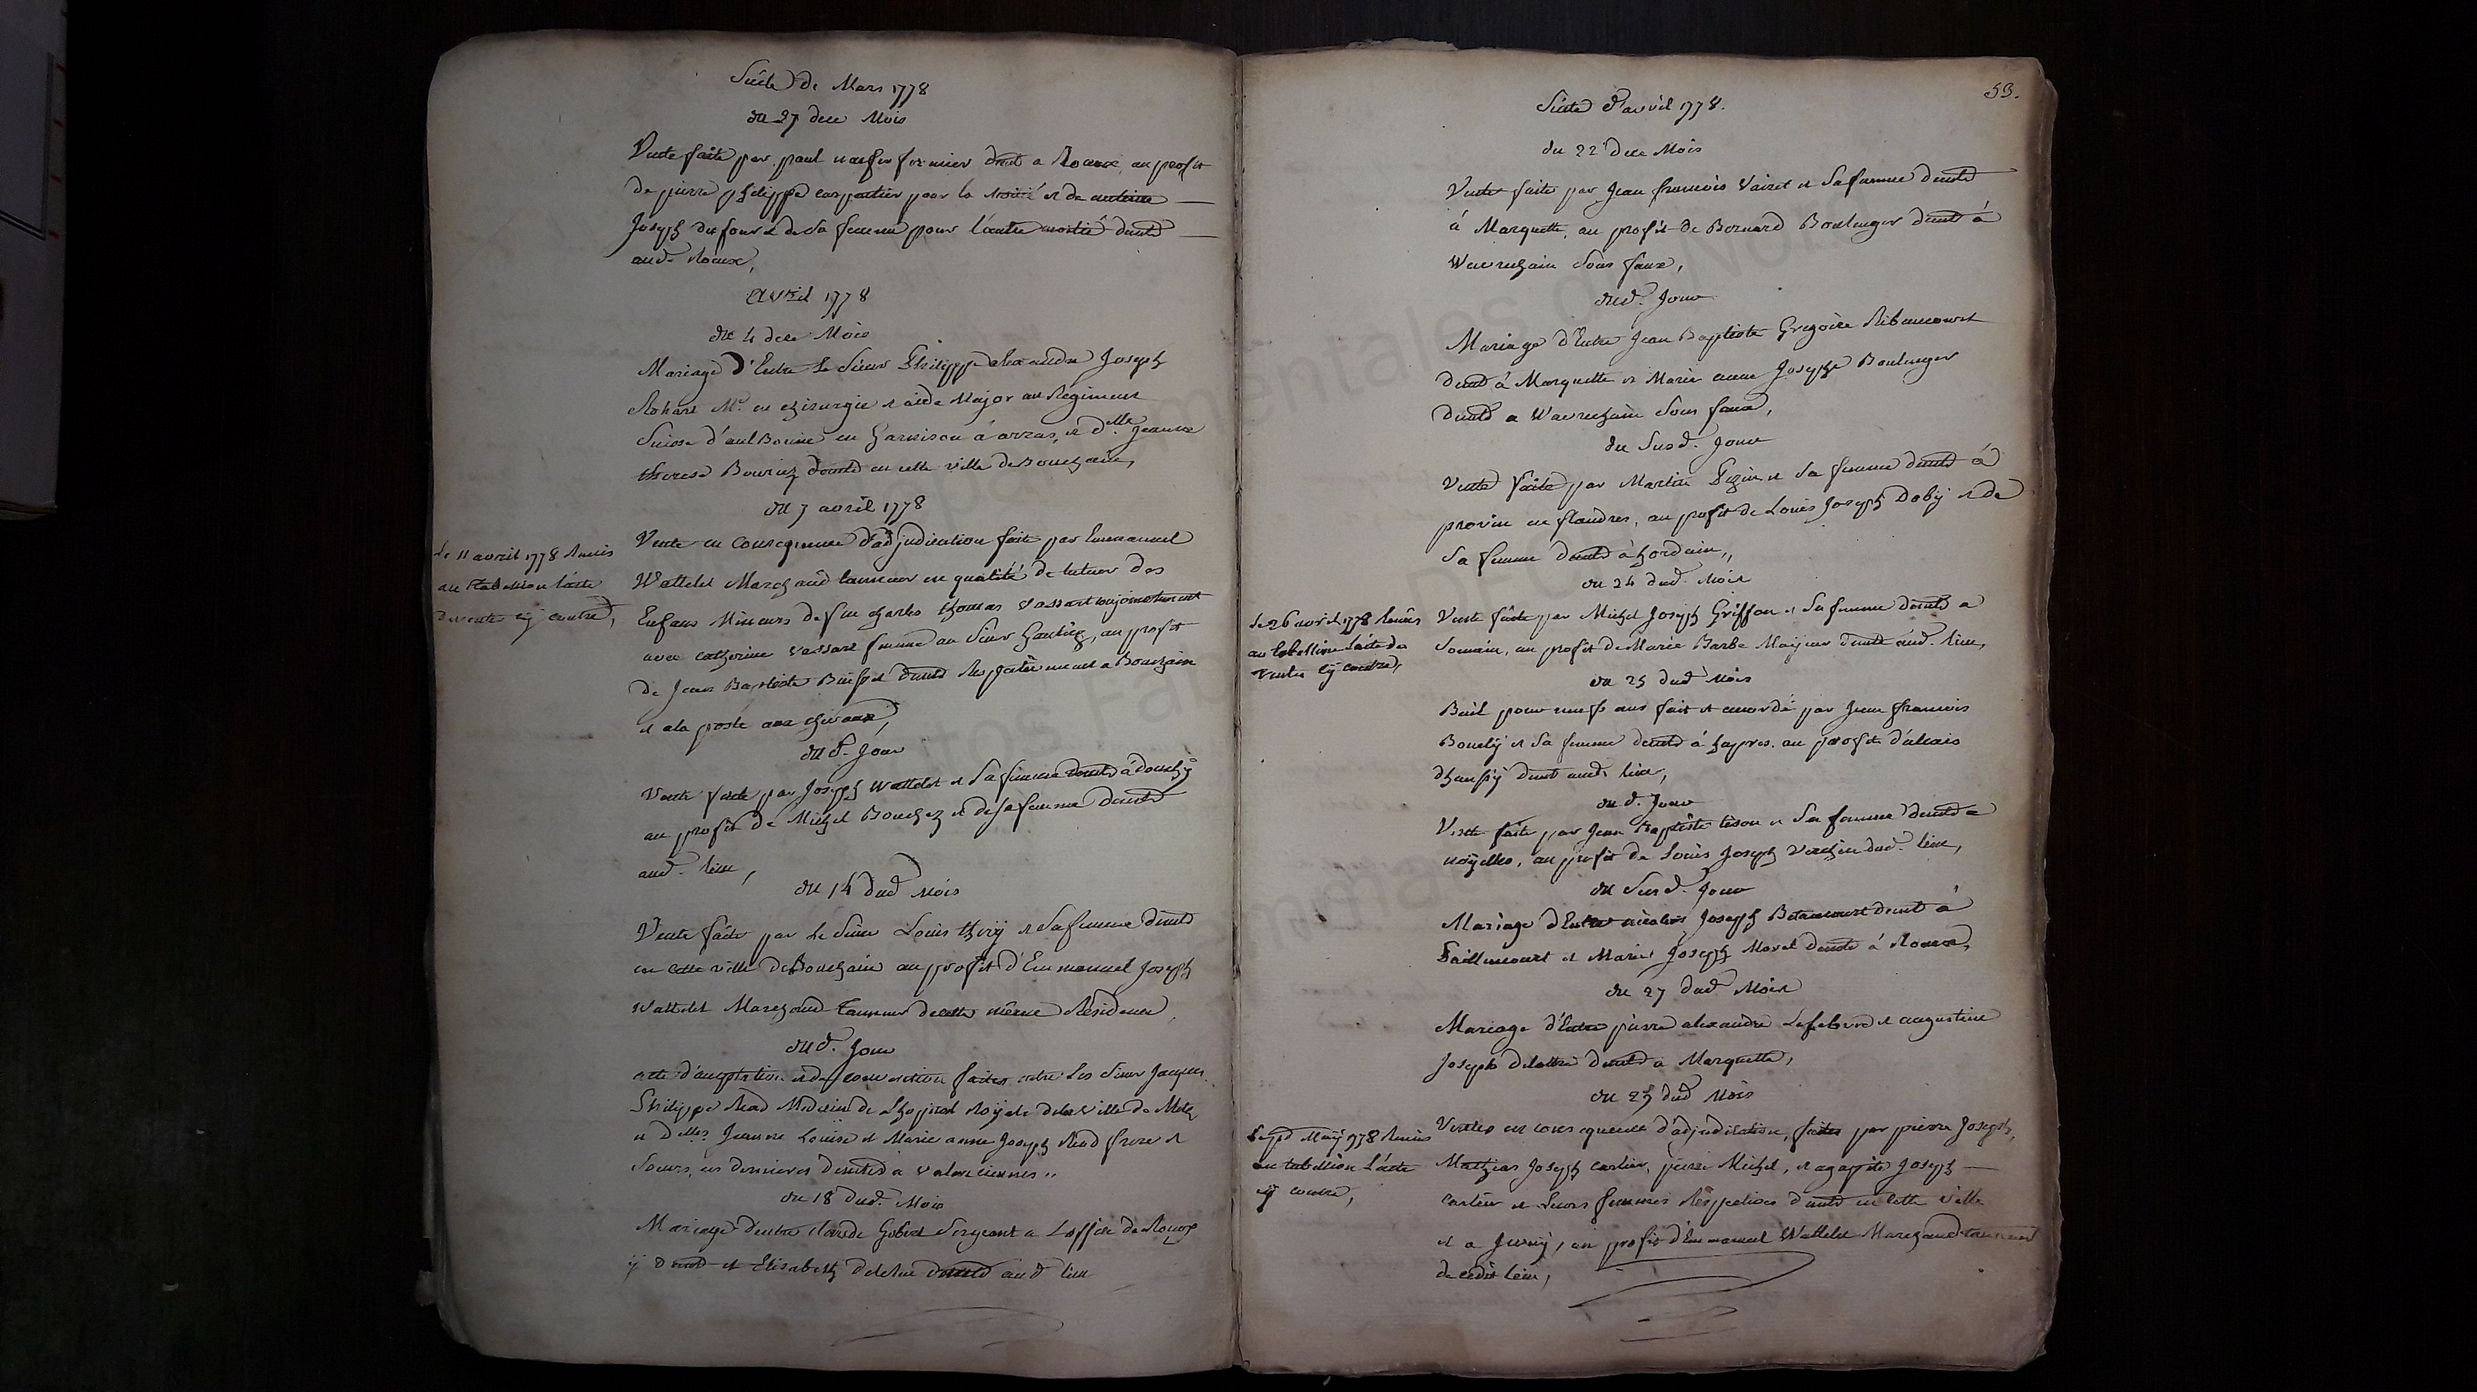 Suite de Mars 1778
du 27 dece Mois
Vente faite par paul fermier demt a Roeux, au profit
de pierre philippe carpentier pour la moitié et de antoine
Joseph dufour et de sa femme pour l'autre moitié demts
aud. Roeux,
Avril 1778
du 4 dece Mois
Mariage d'Entre Le Sieur Philippe alexandre Joseph
Rohart Me. en chirurgie et aide Major au Regiment
Suisse d'aulbonne en Garnison á arras, et dlle. Jeanne
therese Bouriez demts en cette ville de Bouchain,
du 7 avril 1778
Vente en Consequence d'adjudication faite par Emmanuel
Wattelet Marchand tanneur en qualité de tuteur des
Enfans Mineurs de feu charles thomas vassart conjointement
avec catherine vassart femme au Sieur, au profit
de Jean Baptiste demts Respectivement a Bouchain
et a la poste aux chevaux,
Le 11 avril 1778 Remis
au tabellion l'acte
de vente cy contre,
du d. Jour
Vente faite par Joseph Wattelet et Sa femme demts á douchÿ
au profit de Michel Bouchez et de sa femme demts
aud. lieu,
du 14 dud Mois
Vente faite par Le Sieur Louis thery et Sa femme demts
en cette ville de Bouchain au profit d'Emmanuel Joseph
Wattelet Marchand Tanneur de cette même Résidence,
du d. Jour
acte d'acceptation et de convention faites entre Les Sieur Jacques
Philippe Read Medecin de Lhopital Roÿale de la Ville de Metz
et dlles. Jeanne Louise et Marie anne Joseph Read frere et
Soeurs, ces dernieres demts a valenciennes,,
du 18 dud. Mois
Mariage d'entre Claude Gobert Sergeant a Loffice de
ÿ demt et Elisabeth delerue demts aud lieu
53.
Suite d'avril 1778.
du 22 dece Mois
Vente faite par Jean francois Vairet et Sa femme demts
á Marquette, au profit de Bernard Boulenger demt á
Wavrechain Sous faux,
du d. Jour
Mariage d'Entre Jean Baptiste Gregoire Ribaucourt
demt á Marquette et Marie anne Josephe Boulenger
demts a Wavrechain Sous faux,
du Susd. Jour
Vente faite par Martin et Sa femme demts á
provin en flandres, au profit de Louis Joseph Dobÿ et de
Sa femme demts á hordain,,
du 24 dud. Mois
Vente faite par Michel Joseph Griffon et Sa femme demts a
Somain, au profit de Marie Barbe Maÿeur demte aud. lieu,
Le 26 avril 1778 Remis
au tabellion l'acte de
vente cÿ contre,
du 25 dud Mois
Bail pour neufs ans fait et accordé par Jean francois
Bouchÿ et Sa femme demts á hapres, au profit d'alexis
demt aud. lieu,
du d. Jour
Vente faite par Jean Baptiste tison et Sa femme demts a
noÿelles, au profit de Louis Joseph Verchin dud. lieu,
du Susd. Jour
Mariage d'Entre nicolas Joseph Betancourt demt á
Paillencourt et Marie Joseph Morel demte á Roeux,
du 27 dud Mois
Mariage d'Entre pierre alexandre Lefebvre et augustine
Joseph delattre demts a Marquette,
du 29 dud Mois
Ventes en consequence d'adjudication, faites par pierre Joseph,
Mathias Joseph cartier, pierre Michel, et agapite Joseph
cartier et Leurs femmes Respectives demts en cette ville
et a, au profit d'Emmanuel Wattelet Marchand tanneur
de cedit lieu,
Le pr. Maÿ 1778 Remis
au tabellion L'acte
cÿ contre,